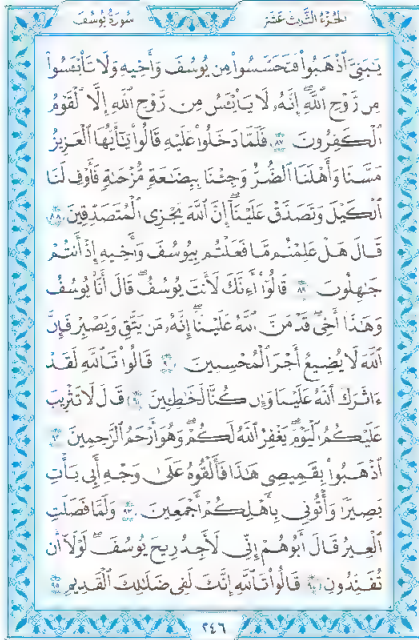 الجزء الثالث عشر
سورة يوسف
يَٰبَنِىَّ ٱذْهَبُوا۟ فَتَحَسَّسُوا۟ مِن يُوسُفَ وَأَخِيهِ وَلَا تَا۟يْـَٔسُوا۟
مِن رَّوْحِ ٱللَّهِ ۖ إِنَّهُۥ لَا يَا۟يْـَٔسُ مِن رَّوْحِ ٱللَّهِ إِلَّا ٱلْقَوْمُ
ٱلْكَٰفِرُونَ ٨٧ فَلَمَّا دَخَلُوا۟ عَلَيْهِ قَالُوا۟ يَٰٓأَيُّهَا ٱلْعَزِيزُ
مَسَّنَا وَأَهْلَنَا ٱلضُّرُّ وَجِئْنَا بِبِضَٰعَةٍ مُّزْجَىٰةٍ فَأَوْفِ لَنَا
ٱلْكَيْلَ وَتَصَدَّقْ عَلَيْنَآ ۖ إِنَّ ٱللَّهَ يَجْزِى ٱلْمُتَصَدِّقِينَ ٨٨
قَالَ هَلْ عَلِمْتُم مَّا فَعَلْتُم بِيُوسُفَ وَأَخِيهِ إِذْ أَنتُمْ
جَٰهِلُونَ ٨٩ قَالُوٓا۟ أَءِنَّكَ لَأَنتَ يُوسُفُ ۖ قَالَ أَنَا۠ يُوسُفُ
وَهَٰذَآ أَخِى ۖ قَدْ مَنَّ ٱللَّهُ عَلَيْنَآ ۖ إِنَّهُۥ مَن يَتَّقِ وَيَصْبِرْ فَإِنَّ
ٱللَّهَ لَا يُضِيعُ أَجْرَ ٱلْمُحْسِنِينَ ٩٠ قَالُوا۟ تَٱللَّهِ لَقَدْ
ءَاثَرَكَ ٱللَّهُ عَلَيْنَا وَإِن كُنَّا لَخَٰطِـِٔينَ ٩١ قَالَ لَا تَثْرِيبَ
عَلَيْكُمُ ٱلْيَوْمَ ۖ يَغْفِرُ ٱللَّهُ لَكُمْ ۖ وَهُوَ أَرْحَمُ ٱلرَّٰحِمِينَ ٩٢
ٱذْهَبُوا۟ بِقَمِيصِى هَٰذَا فَأَلْقُوهُ عَلَىٰ وَجْهِ أَبِى يَأْتِ
بَصِيرًا وَأْتُونِى بِأَهْلِكُمْ أَجْمَعِينَ ٩٣ وَلَمَّا فَصَلَتِ
ٱلْعِيرُ قَالَ أَبُوهُمْ إِنِّى لَأَجِدُ رِيحَ يُوسُفَ ۖ لَوْلَآ أَن
تُفَنِّدُونِ ٩٤ قَالُوا۟ تَٱللَّهِ إِنَّكَ لَفِى ضَلَٰلِكَ ٱلْقَدِيمِ ٩٥
٢٤٦